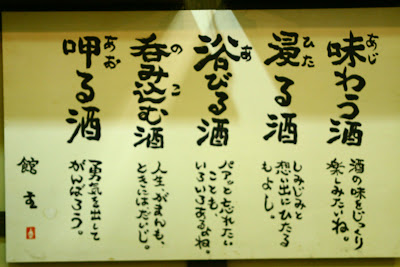 あじ
味わう酒
酒の味をじっくり
楽しみたいね。
ひた
浸る酒
しみじみと
想い出にひたる
もよし。
あ
浴びる酒
パアッと忘れたい
ことも、
いろいろあるよね。
の こ
呑み込む酒
人生、がまんも、
ときにはだいじ。
あお
呷る酒
勇気を出して
がんばろう。
館主